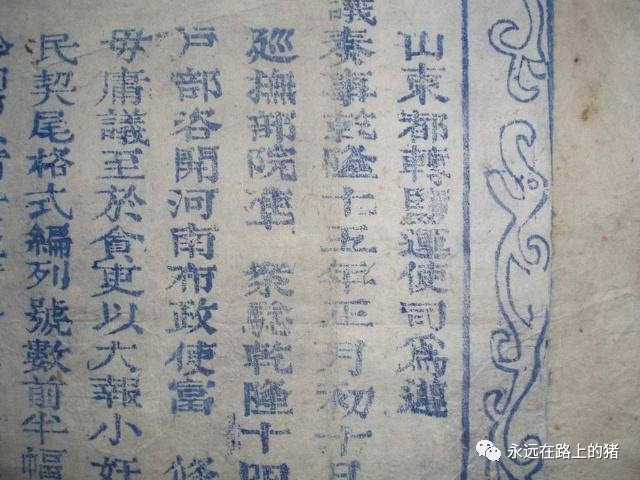 山東都轉鹽運使司爲遵
議奏事乾隆十五年正月初十日
廵撫部院準 衆騐乾隆十四
戸部咨開河南布政使富
毋庸議至於貪吏以大報小奸
民契尾格式編列號數前半幅
永远在路上的猪